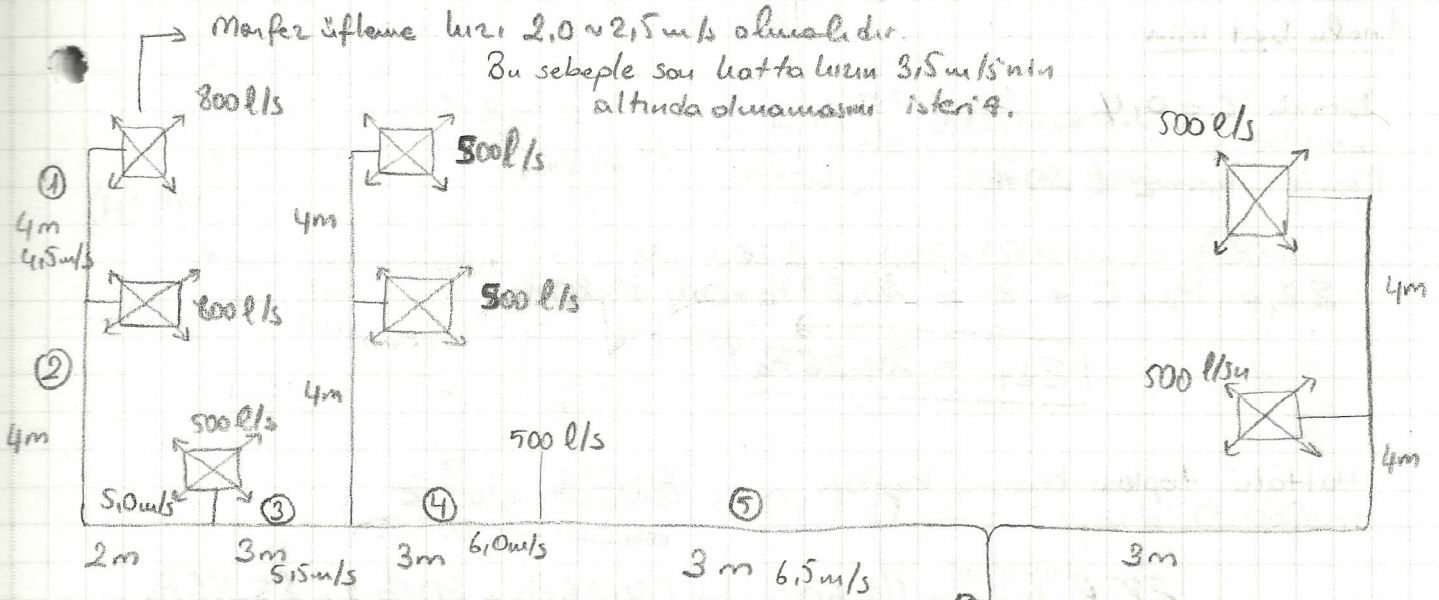 Menfez üfleme hızı 2,0 ~ 2,5 m/s olmalıdır.
Bu sebeple son hatta hızın 3,5 m/s'nin
altında olmamasını isteriz.
800 l/s
500 l/s
500 l/s
①
4m
4,5 m/s
4m
800 l/s
500 l/s
4m
②
4m
4m
500 l/sn
500 l/s
500 l/s
4m
5,0 m/s
③
④
⑤
2m
3m
5,5 m/s
3m
6,0 m/s
3m
6,5 m/s
3m